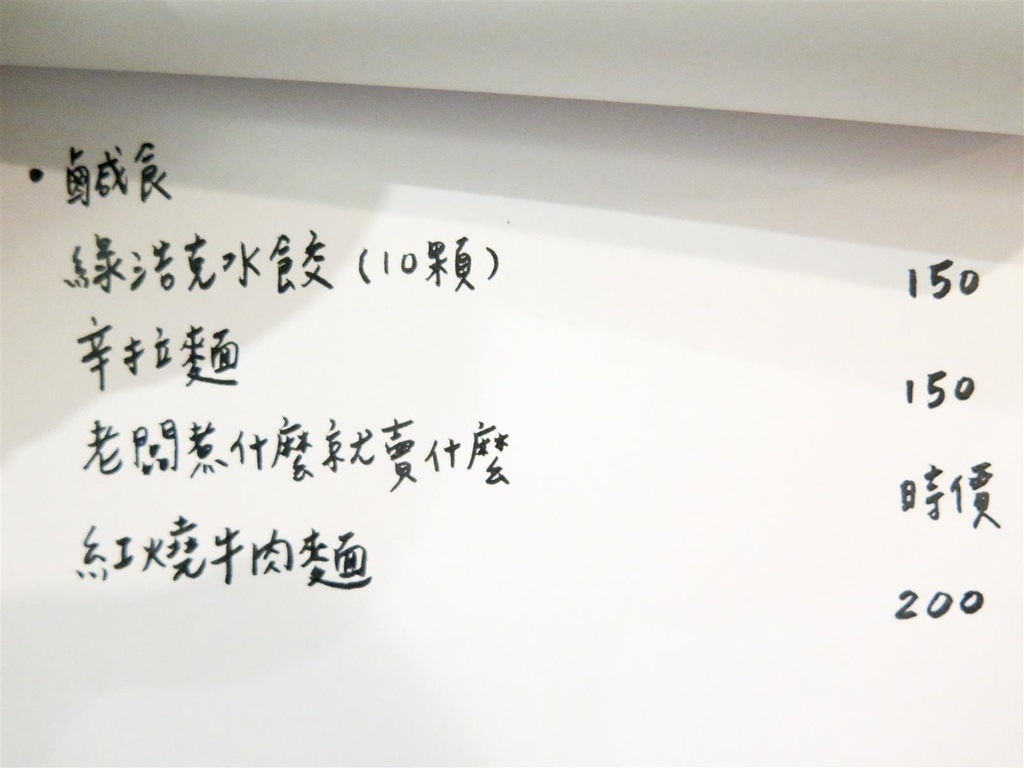 • 鹹食
綠浩克水餃(10顆) 150
辛拉麵 150
老闆煮什麼就賣什麼 時價
紅燒牛肉麵 200